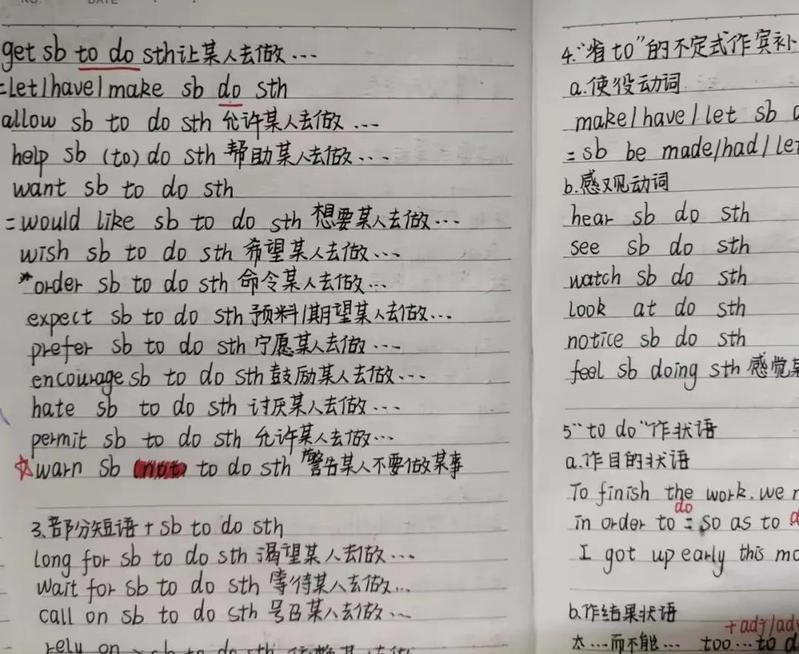 get sb to do sth 让某人去做...
=let/have/make sb do sth
allow sb to do sth 允许某人去做...
help sb (to) do sth 帮助某人去做...
want sb to do sth
=would like sb to do sth 想要某人去做...
wish sb to do sth 希望某人去做...
*order sb to do sth 命令某人去做...
expect sb to do sth 预料/期望某人去做...
prefer sb to do sth 宁愿某人去做...
encourage sb to do sth 鼓励某人去做...
hate sb to do sth 讨厌某人去做...
permit sb to do sth 允许某人去做...
☆warn sb (not) to do sth 警告某人不要做某事
3.部分短语+sb to do sth
long for sb to do sth 渴望某人去做...
wait for sb to do sth 等待某人去做...
call on sb to do sth 号召某人去做...
rely on sb to do sth
4."省to"的不定式作宾补
a.使役动词
make/have/let sb
=sb be made/had/let
b.感观动词
hear sb do sth
see sb do sth
watch sb do sth
look at do sth
notice sb do sth
feel sb doing sth 感觉
5"to do"作状语
a.作目的状语
To finish the work, we
in order to do = so as to
I got up early this
b.作结果状语
+adj/adv
太...而不能... too...to